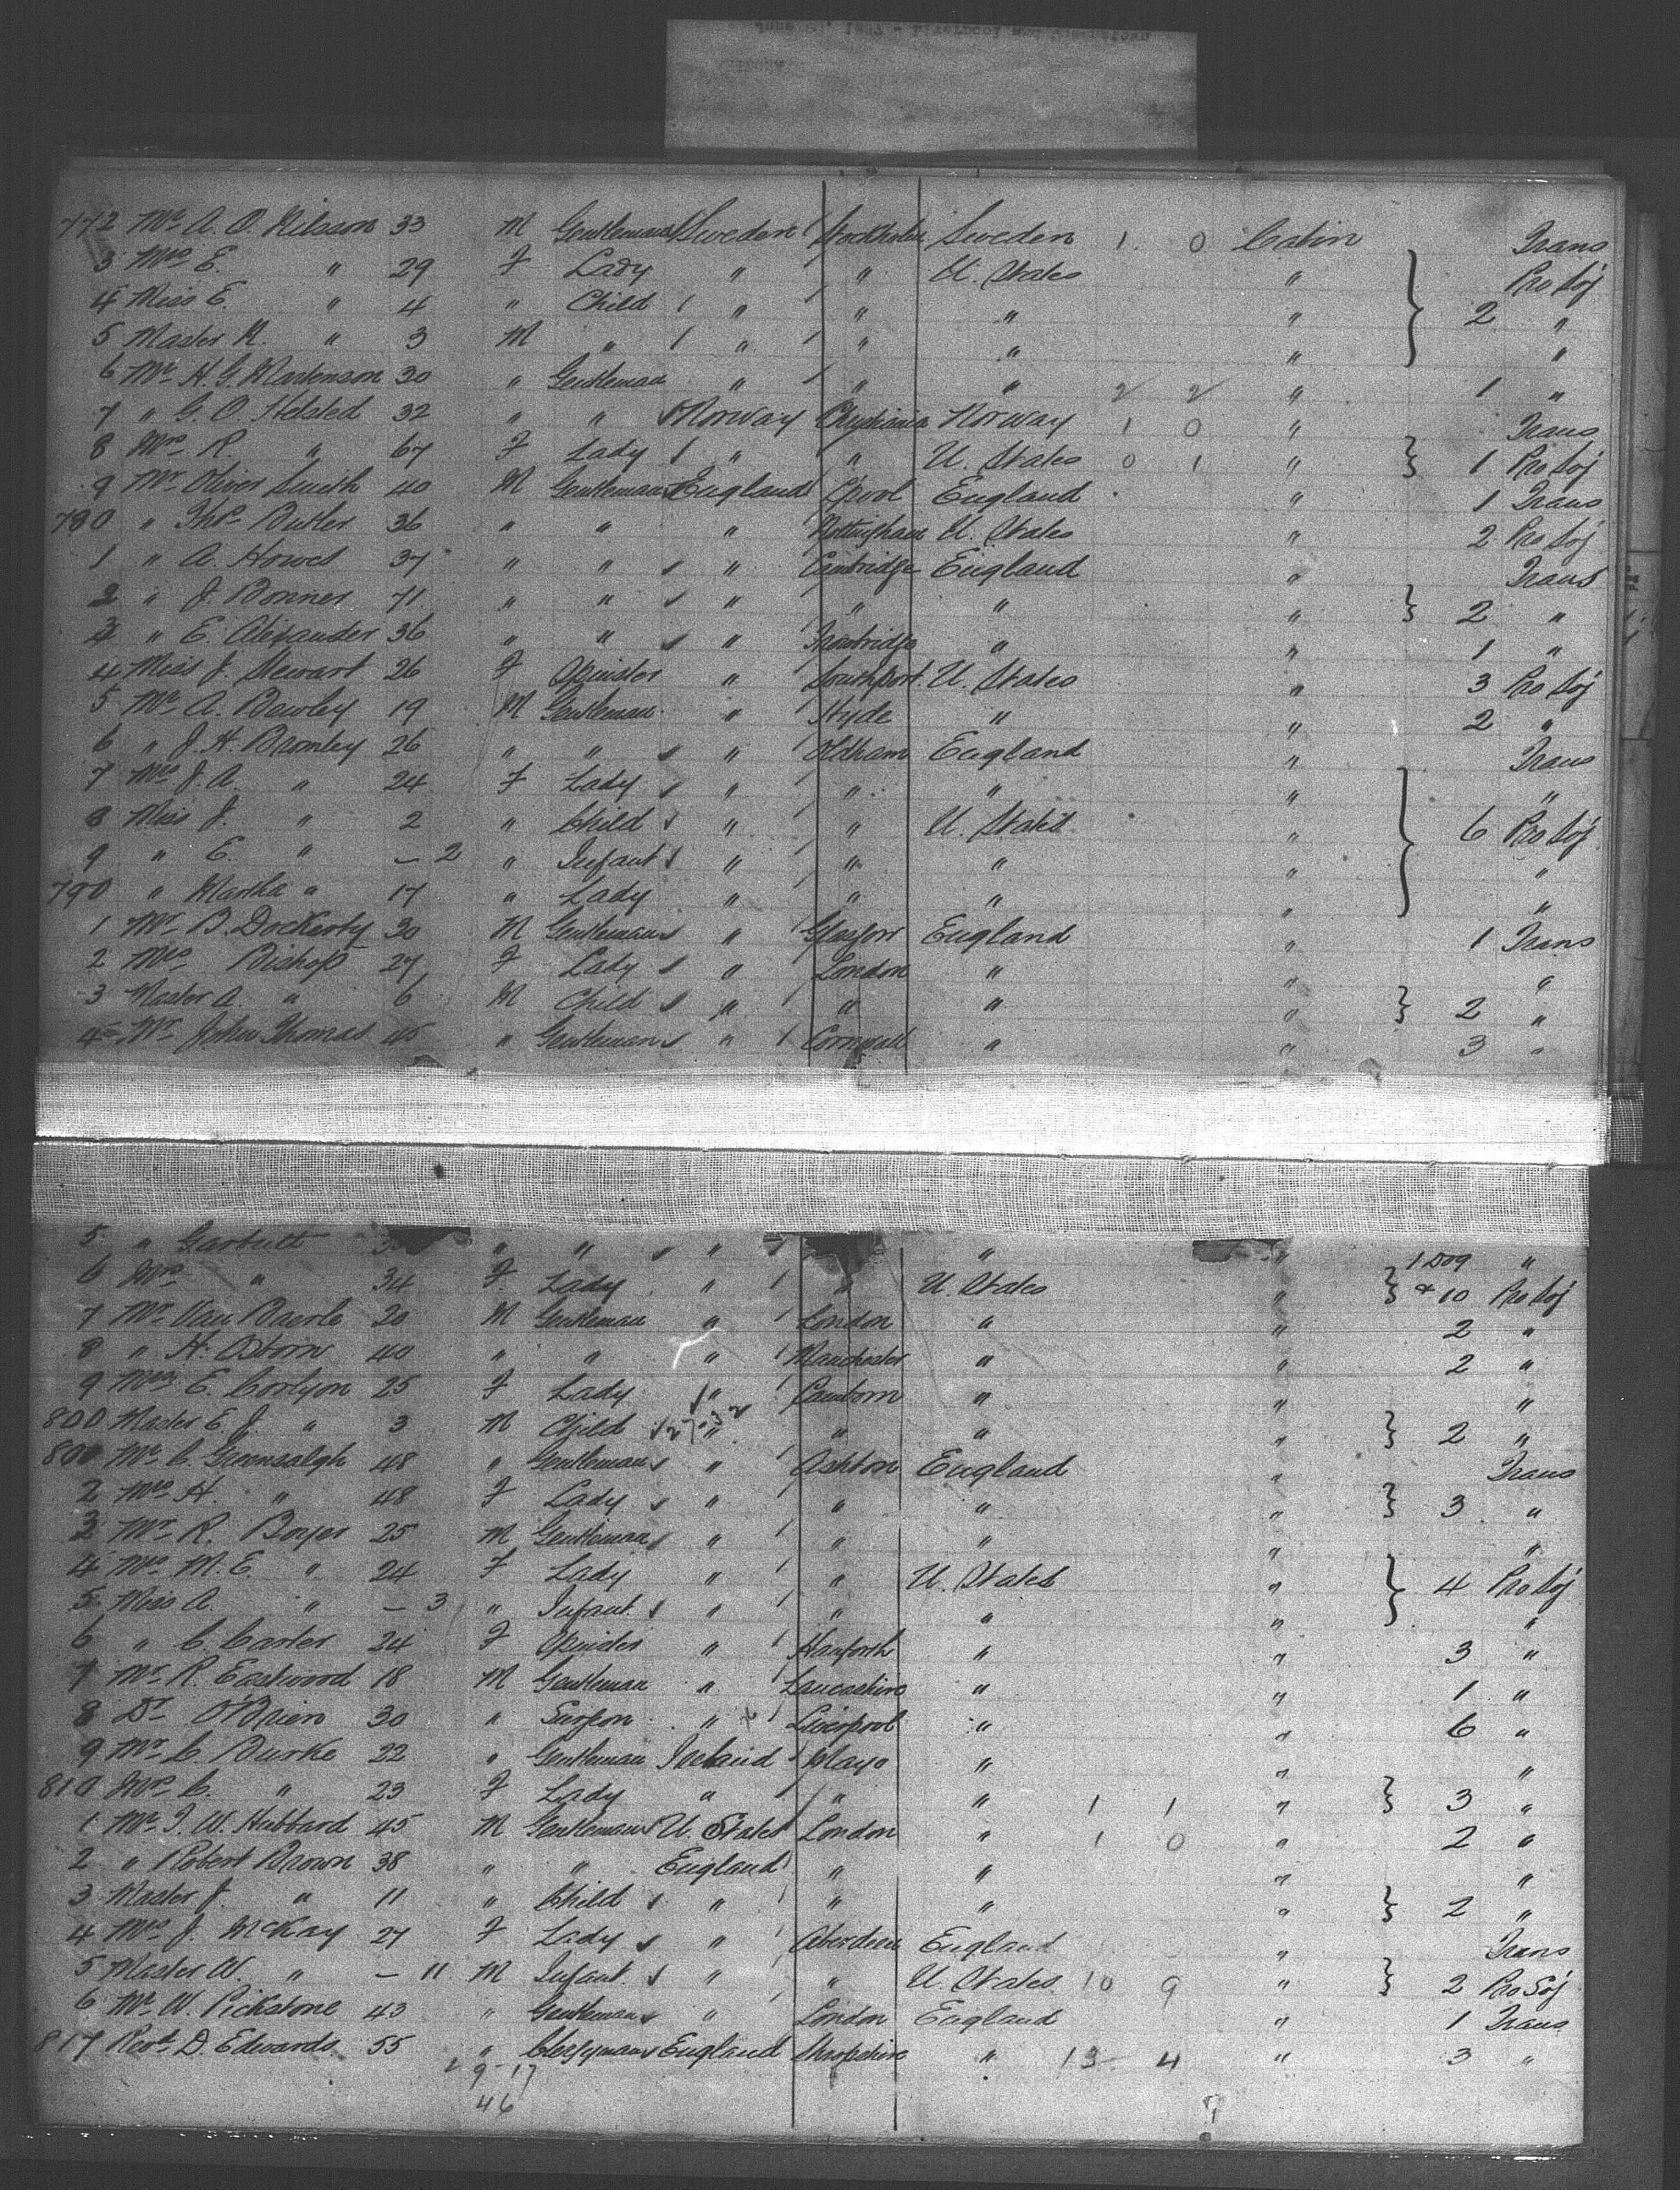 772 Mr A. O. Nilsson 33 M Gentleman Sweden Stockholm Sweden 1 0 Cabin Trans
3 Mrs E. " 29 F Lady " " U. States " Pro Soj
4 Miss E. " 4 " Child " " " " 2 "
5 Master " 3 M " " " " " "
6 Mr H. G. Martenson 30 " Gentleman " " " 2 2 " 1 "
7 " G. O. Helsted 32 " " Norway Christiania Norway 1 0 " Trans
8 Mrs R. " 67 F Lady " " U. States 0 1 " 1 Pro Soj
9 Mr Oliver Smith 40 M Gentleman England L'pool England " 1 Trans
780 " Thos Butler 36 " " " Nottingham U. States " 2 Pro Soj
1 " A. Howes 37 " " " Cambridge England " Trans
2 " J. Bonner 71 " " " " " " 2 "
3 " E. Alexander 36 " " " Trowbridge " " 1 "
4 Miss J. Stewart 26 F Spinster " Southport U. States " 3 Pro Soj
5 Mr A. Bewley 19 M Gentleman " Hyde " " 2 "
6 " J. H. Bromley 26 " " " Oldham England " Trans
7 Mrs J. A. " 24 F Lady " " " " "
8 Miss J. " 2 " Child " " U. States " 6 Pro Soj
9 " E. " — 2 " Infant " " " " "
790 " Martha " 17 " Lady " " " " "
1 Mr B. Dockerty 30 M Gentleman " Glasgow England " 1 Trans
2 Mrs Bishop 27 F Lady " London " " "
3 Master A. " 6 M Child " " " " 2 "
4 Mr John Thomas 45 " Gentleman " Cornwall " " 3 "
5 " Garbutt " " " " " 1 Dog "
6 Mrs " 34 F Lady " " U. States " & 10 Pro Soj
7 Mr Van Baerle 20 M Gentleman " London " " 2 "
8 " H. Osborn 40 " " " Manchester " " 2 "
9 Mrs E. Corlyon 25 F Lady " Camborn " " "
800 Master E. J. " 3 M Child " " " " 2 "
800 Mr C. Greensalgh 48 " Gentleman " Ashton England " Trans
2 Mrs H. " 48 F Lady " " " " 3 "
3 Mr R. Boyer 25 M Gentleman " " " " "
4 Mrs M. E. " 24 F Lady " " U. States " 4 Pro Soj
5 Miss A. " — 3 " Infant " " " " "
6 " C. Carter 24 F Spinster " Hanforth " " 3 "
7 Mr R. Eastwood 18 M Gentleman " Lancashire " " 1 "
8 Dr O'Brien 30 " Surgeon " Liverpool " " 6 "
9 Mr C. Burke 22 " Gentleman Ireland Mayo " " "
810 Mrs C. " 23 F Lady " " " 1 1 " 3 "
1 Mr J. W. Hubbard 45 M Gentleman U. States London " 1 0 " 2 "
2 " Robert Brown 38 " " England " " " "
3 Master J. " 11 " Child " " " " 2 "
4 Mrs J. McKay 27 F Lady " Aberdeen England " Trans
5 Master W. " — 11 M Infant " " U. States 10 9 " 2 Pro Soj
6 Mr W. Pickstone 43 " Gentleman " London England " 1 Trans
817 Revd D. Edwards 55 " Clergyman England Shropshire " 13 4 " 3 "
9-17
46